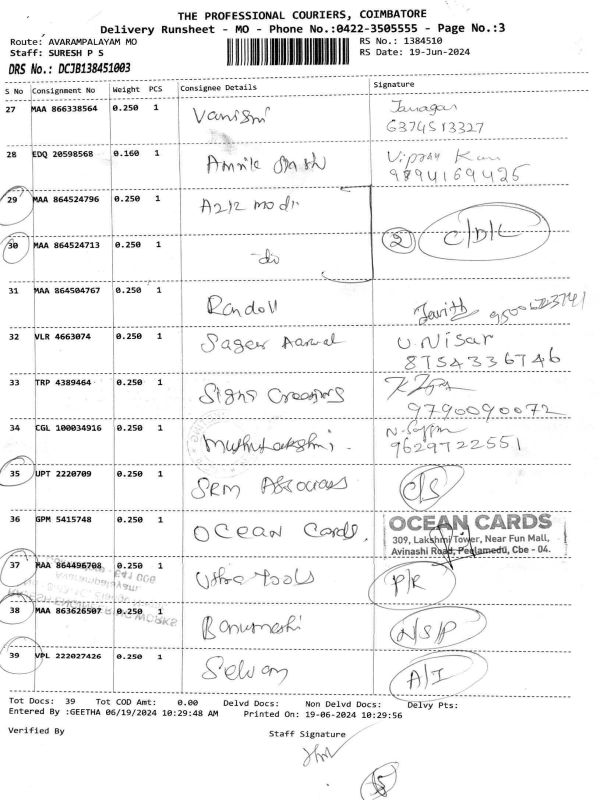 THE PROFESSIONAL COURIERS, COIMBATORE
Delivery Runsheet - MO - Phone No.:0422-3505555 - Page No.:3
Route: AVARAMPALAYAM MO RS No.: 1384510
Staff: SURESH P S RS Date: 19-Jun-2024
DRS No.: DCJB138451003
S No Consignment No Weight PCS Consignee Details Signature
27 MAA 866338564 0.250 1
6374513327
28 EDQ 20598568 0.160 1
9894169425
29 MAA 864524796 0.250 1 Aziz modi
30 MAA 864524713 0.250 1 do 2 C/D/L
31 MAA 864504767 0.250 1
32 VLR 4663074 0.250 1 U. Nisar
8754336746
33 TRP 4389464 0.250 1 Signs
9790090072
34 CGL 100034916 0.250 1 Muthulakshmi.
9629722551
35 UPT 2220709 0.250 1 SRM C/S
36 GPM 5415748 0.250 1 Ocean Cards. OCEAN CARDS
309, Lakshmi Tower, Near Fun Mall,
Avinashi Road, Peelamedu, Cbe - 04.
37 MAA 864496708 0.250 1 Tools P/R
38 MAA 863626507 0.250 1 N/S/P
39 VPL 222027426 0.250 1 Selvam A/I
Tot Docs: 39 Tot COD Amt: 0.00 Delvd Docs: Non Delvd Docs: Delvy Pts:
Entered By :GEETHA 06/19/2024 10:29:48 AM Printed On: 19-06-2024 10:29:56
Verified By Staff Signature